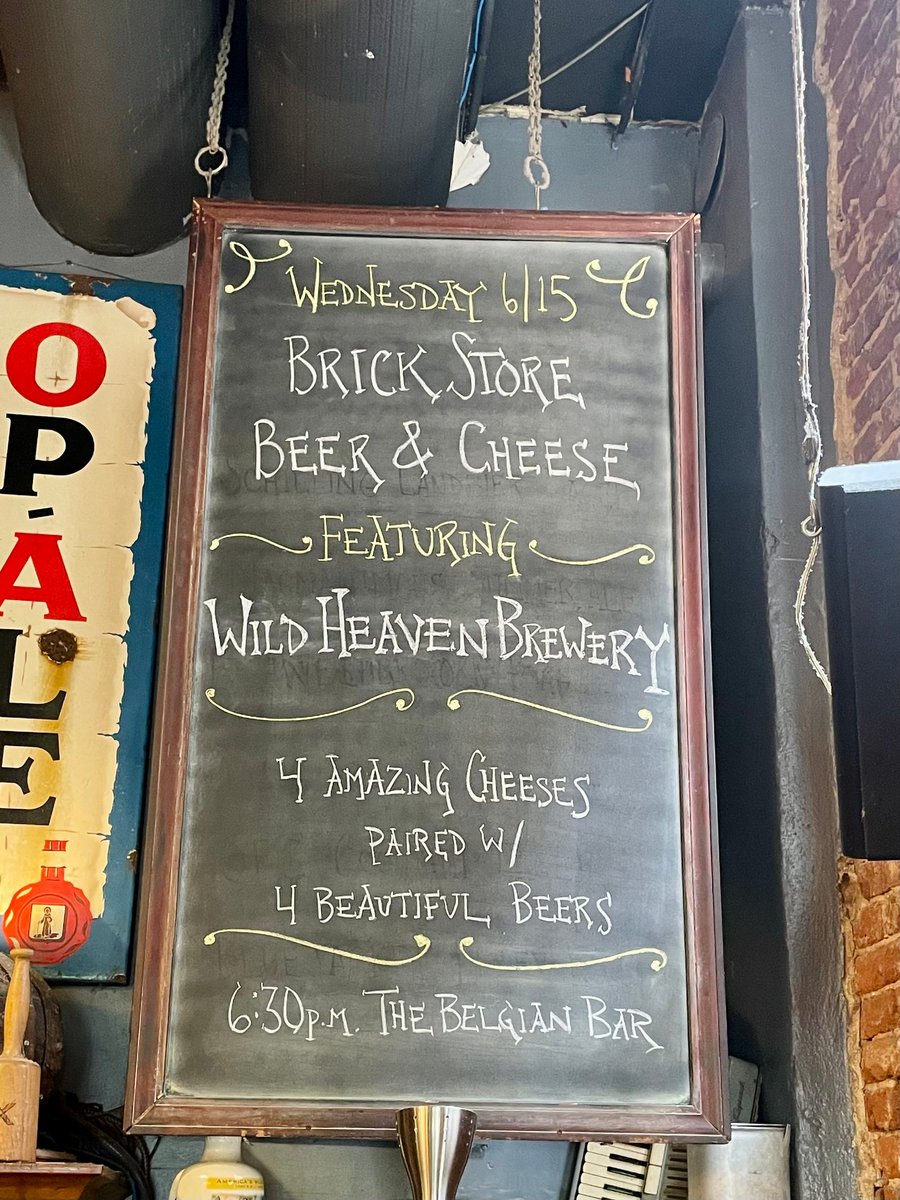 WEDNESDAY 6/15
BRICK STORE
BEER & CHEESE
FEATURING
WILD HEAVEN BREWERY
4 AMAZING CHEESES
PAIRED W/
4 BEAUTIFUL BEERS
6:30 P.M. THE BELGIAN BAR
O
P
A
L
E